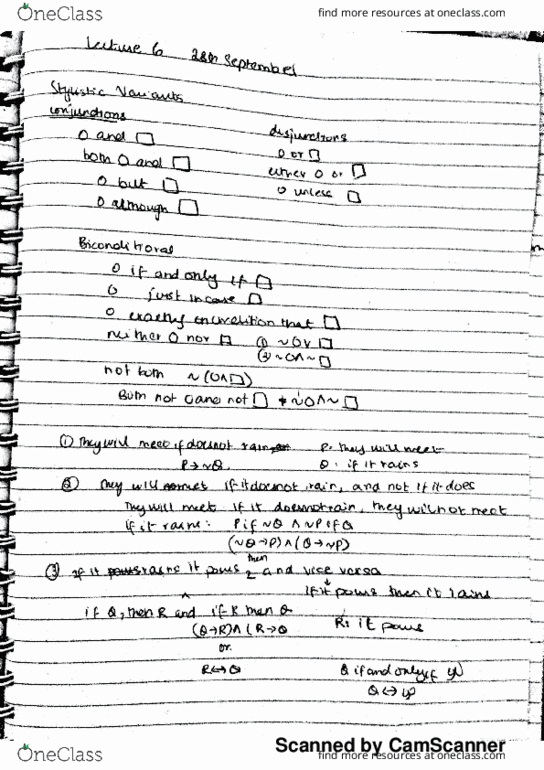 OneClass
find more resources at oneclass.com
Lecture 6 28th September
Stylistic Variants
conjunctions
O and □
both O and □
O but □
O although □
disjunctions
O or □
either O or □
O unless □
Biconditional
O if and only if □
O just in case □
O exactly on condition that □
neither O nor □ ① ~O∨□
② ~O∧~□
not both ~(O∧□)
Both not O and not □ ~O∧~□
① They will meet if doesnot rain P: They will meet
P→~Q Q: if it rains
② They will meet if it doesnot rain, and not if it does
They will meet if it doesnot rain, they will not meet
if it rains: P if ~Q ∧ ~P if Q
(~Q→P)∧(Q→~P)
③ If it rains it pours then and vice versa
If it pours then it rains
if Q, then R and if R then Q
(Q→R)∧(R→Q R: it pours
or
R↔Q Q if and only if
Q↔
OneClass
Scanned by CamScanner
find more resources at oneclass.com